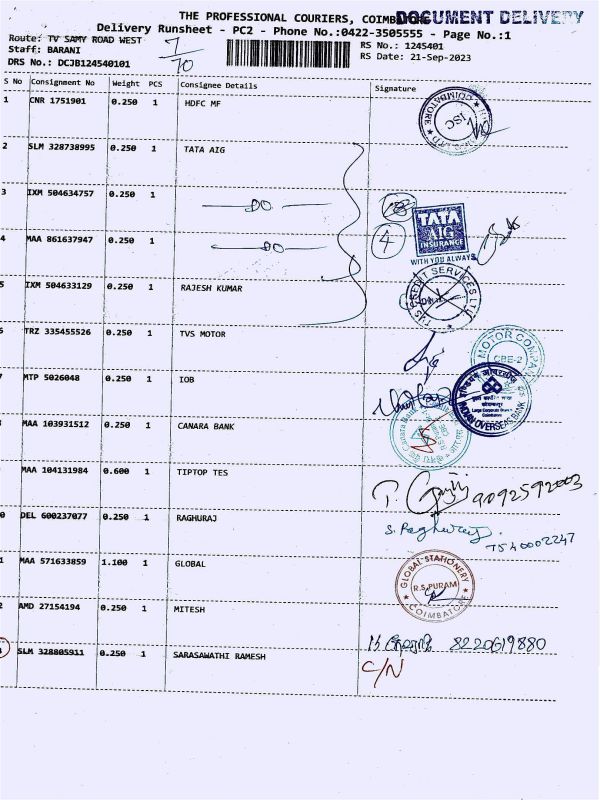 THE PROFESSIONAL COURIERS, COIMBATORE
DOCUMENT DELIVERY
Delivery Runsheet - PC2 - Phone No.:0422-3505555 - Page No.:1
Route: TV SAMY ROAD WEST
7/70
RS No.: 1245401
Staff: BARANI
RS Date: 21-Sep-2023
DRS No.: DCJB124540101
S No Consignment No Weight PCS Consignee Details Signature
1 CNR 1751901 0.250 1 HDFC MF
COIMBATORE
2 SLM 328738995 0.250 1 TATA AIG
3 IXM 504634757 0.250 1 DO
4 MAA 861637947 0.250 1 DO
4
TATA
AIG
INSURANCE
WITH YOU ALWAYS
5 IXM 504633129 0.250 1 RAJESH KUMAR
TVS CREDIT SERVICES LTD
6 TRZ 335455526 0.250 1 TVS MOTOR
MOTOR COMPANY
CBE-2
7 MTP 5026048 0.250 1 IOB
INDIAN OVERSEAS BANK
8 MAA 103931512 0.250 1 CANARA BANK
Canara Bank
9 MAA 104131984 0.600 1 TIPTOP TES
9092592003
0 DEL 600237077 0.250 1 RAGHURAJ
S. Raghuraj
7540002247
1 MAA 571633859 1.100 1 GLOBAL
GLOBAL STATIONERY
R.S.PURAM
COIMBATORE
2 AMD 27154194 0.250 1 MITESH
8220619880
SLM 328805911 0.250 1 SARASAWATHI RAMESH
C/N